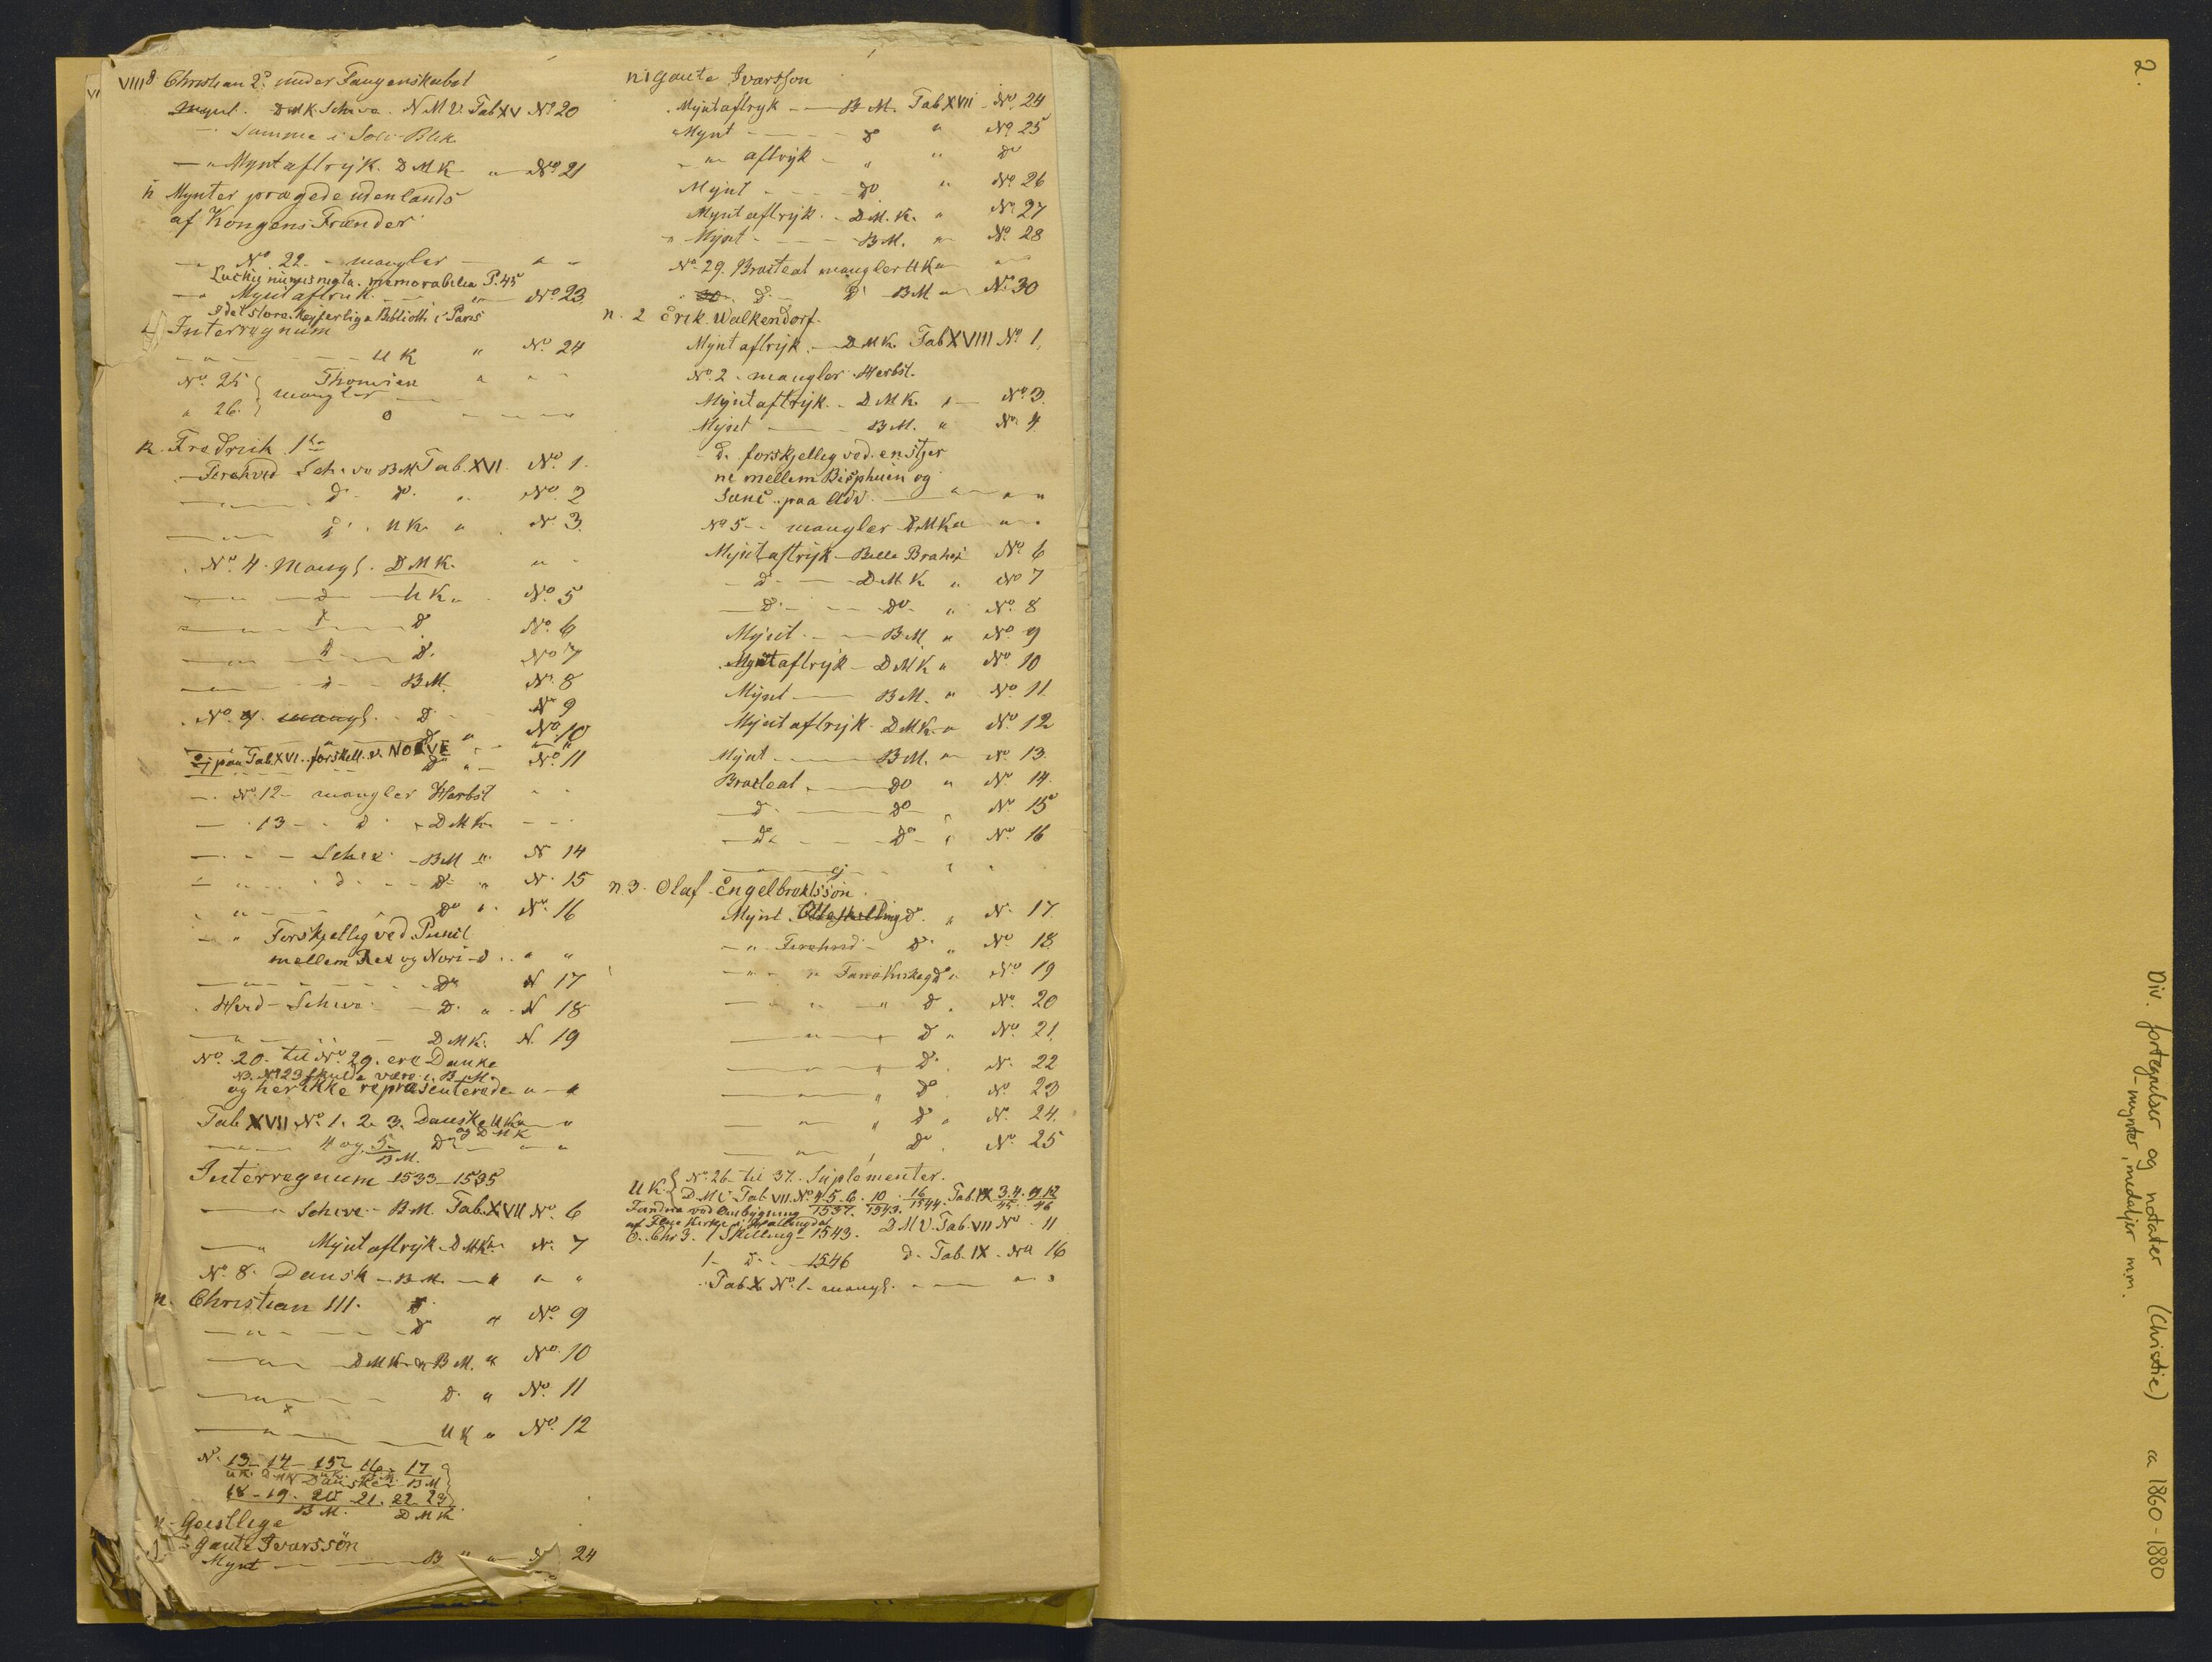 VI
VIIII
Christian 2? under Fangenskabet
Mynt. DMK Schive. N M V. Tab XV No 20
Samme i Sölv Blik
" Myntaftryk. D M K " No 21
n Mynter prægede udenlands
af Kongens Frænder
No 22 - mangler " "
Luckii numismata memorabilia P. 45
" Myntaftryk " No 23
i det store Keyserlige Biblioth i Paris
Interregnum
" U K " No 24
No 25 Thomsen " "
" 26. mangler
n. Fredrich 1ste
Firehvid Schive BM Tab. XVI No 1.
do do " No 2
do UK " No 3.
No 4. Mangl. DMK. "
" do UK " No 5
do do No 6
" do do No 7
" do BM. No 8
No 9. mangl. do No 9
" do " No 10
ej paa Tab XVI. forskell. v. NORVE " "
do " No 11
No 12 - mangler Herbst " "
13 - do " DMK
Schive - BM " N 14
" do do " N 15
" do " No 16
" Forskjellig ved Punct
mellem Rex og Nori-d " "
do N 17
Hvid - Schive do " N 18
" DMK. N. 19
No 20. til No 29. ere Danske
NB. No 23 skulde være i B M.
og her ikke repræsenterede " "
Tab XVII No 1. 2. 3. Danske UK "
og DMK
4 og 5 do " "
BM.
Interregnum 1533-1535
" Schive - BM. Tab. XVII No 6
" Myntaftryk DMK " No 7
No 8. Dansk - BM. " " "
n. Christian III. do
" do " No 9
" DMK " BM. " No 10
" do " No 11
x
" UK " No 12
No 13 - 14 - 15 16 - 17
UK. DMK Danske BM
18 - 19. 20 - 21. 22 23
BM. DMK.
n - Geistlige
Gaute Ivarssön
Mynt B " " No 24
n 1 Gaute Ivarsson
Myntaftryk - BM. Tab XVII No 24
" Mynt do " No 25
" " aftryk " " do
Mynt do " No 26
Myntaftryk DM.K. " No 27
" Mynt BM. " No 28
No 29. Bracteat mangler UK " "
30. do do BM " No 30
n. 2 Erik. Walkendorf.
Myntaftryk. DMK Tab XVIII No 1.
No 2. mangler Herbst.
Myntaftryk. DMK. " No 3.
Mynt BM. " No 4
do forskjellig ved en stjer
ne mellem Bisphuen og
Sanc. paa Adv. " " "
No 5 - mangler DMK " "
Myntaftryk - Bille Brahe " No 6
do DMK " No 7
do do " No 8
Mynt BM " No 9
Myntaftryk - DMK " No 10
Mynt BM. " No 11
Myntaftryk DMK. " No 12
Mynt BM. " No 13.
Bracteat do " No 14.
do do " No 15
do do " No 16
ej " "
n 3. Olaf Engelbrektsson.
Mynt Otteskilling do " N. 17.
" Firehvid do " No 18.
" " do " No 19
" " do " No 20
" " do " No 21.
" do " N. 22
" do " No 23
" " do " N. 24.
" do " No 25
No 26 til 37. Suplementer.
UK D M V. Tab. VII. No 4. 5. 6. 10 16 Tab. IX 3. 4. 9 12
Fundne ved Ombygning 1537. 1543. 1544 45 46
af Flaa Kirke i Hallingdal
C. Chr 3. 1 Skilling 1543. D M V. Tab. VII No 11
1 do 1546 do Tab. IX. No 16
Tab. X No 1 - mangl. " "
2.
Div. fortegnelser og notater (Christie) ca 1860-1880
- mynter, medaljer m.m.